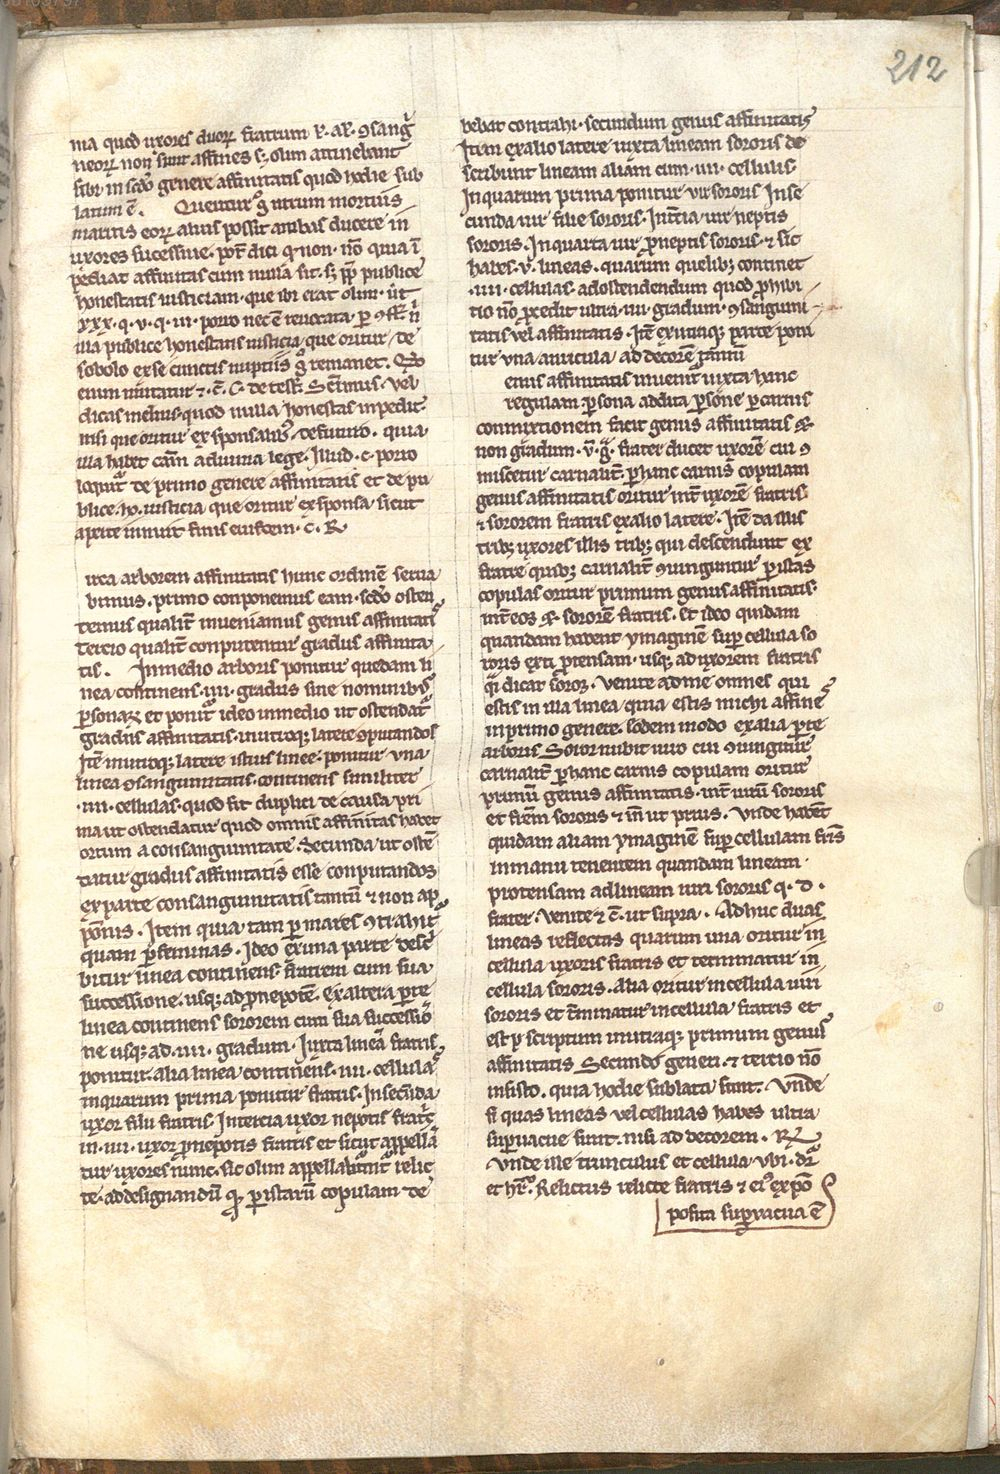 212
nia quod uxores duorꝝ fratrum
neorꝝ non sunt affines sꝫ olim attinebant
sibi in scd̄o genere affinitatis quod hodie sub
latum ē. Queritur utrum mortuis
maritis eorꝝ alius possit ambas ducere in
uxores sucessiue. pot̄ dici q non. nō quia ī
pediat affinitas cum nulla sit. sꝫ ꝓp̄ publice
honestatis iusticiam. que ibi erat olim. ūt
xxx.q.v.q.iii. porro nec ē reuocata
illa publice honestatis iusticia que oritur de
sobolo ex se cunctis nuptiis remanet.
enim mutatur ⁊ c̄. C. de test. Vel
dicas melius quod nulla honestas inpedit
nisi que oritur ex sponsalibꝰ de futuro. quia
illa habet cām adiuura lege. Illud .c. porro
loquit᷑ de primo genere affinitatis et de pu
blice .ho. iusticia que oritur ex sponsa sicut
aperte innuit finis eiusdem .c. R
irca arborem affinitatis hunc ordinē serua
bimus. primo conponemus eam. scd̄o osten
demus qualit̄ inueniamus genus affinitatis
tercio qualit̄ conputentur gradus affinita
tis. In medio arboris ponitur quedam li
nea continens .iiii. gradus sine nominibꝰ
ꝑsonaꝝ et ponit᷑ ideo in medio ut ostendat᷑
gradus affinitatis in utroqꝫ latere ꝯputandos
Itē in utroqꝫ latere istius linee ponitur una
linea ꝯsanguinitatis continens similiter
.iiii. cellulas. quod fit duplici de causa pri
ma ut ostendatur quod omnis affinitas habet
ortum a consanguinitate. Secunda ut ostē
datur gradus affinitatis esse conputandos
ex parte consanguinitatis tantū ⁊ non ap
ponis. Item quia tam ꝑ mares ꝯtrahit᷑
quam ꝑ feminas. Ideo ex una parte descⁱ
bitur linea continens fratrem cum sua
successione. usqꝫ ad ꝓnepotē. ex altera ꝑte
linea continens sororem cum sua successio
ne usqꝫ ad .iiii. gradum. Iuxta lineā fratris
ponitur alia linea continens .iiii. cellulas
in quarum prima ponitur fratris. In secunda
uxor filii fratris In tercia uxor nepotis frat̄s
in .iiii. uxor ꝓnepotis fratris et sicut appellā
tur uxores nunc. sic olim appellabunt᷑ relic
te. ad designandū ꝑ istarū copulam de
bebat contrahi. secundum genus affinitatis
Item ex alio latere iuxta lineam sororis de
scribunt lineam aliam cum .iiii. cellulis.
In quarum prima ponitur vir sororis In se
cunda uir filie sororis. In t̄cia uir neptis
sororis. In quarta uir ꝓneptis sororis. ⁊ sic
habes .v. lineas. quarum quelibꝫ continet
.iiii. cellulas. ad ostendendum quod ꝓhibi
tio nō ꝓcedit ultra .iiii. gradum. ꝯsanguni
tatis vel affinitatis. Itē ex utraqꝫ parte poni
tur una auricula ad decorē tantū
enus affinitatis inuenit᷑ iuxta hanc
regulam. ꝑsona addita ꝑsone ꝑ carnis
conmixtionem facit genus affinitatis ⁊
non gradum. v̄.g̃. frater ducet uxorē cui ꝯ
miscetur carnalit̄. ꝑ hanc carnis copulam
genus affinitatis oritur int̄ uxorē fratris
⁊ sororem fratris ex alio latere. Itē da illis
tribꝫ uxores illis tribꝫ qui descendunt ex
fratre quibꝫ carnalit̄ ꝯiunguntur ꝑ istas
copulas oritur primum genus affinitatis.
int̄ eos ⁊ sororē fratris. et ideo quidam
quandam habent ymaginē suꝑ cellula so
roris exti protensam. usqꝫ ad uxorem fratris
q̄i dicat soror. Venite ad me omnes qui
estis in illa linea quia estis michi affine
in primo genere. Eodem modo ex alia ꝑte
arboris Soror nubit uiro cui ꝯiungitur
carnalit̄ ꝑ hanc carnis copulam oritur
primū genus affinitatis. int̄ uirū sororis
et frēm sororis ⁊ in̄ ut prius. Vnde habent
quidam aliam ymaginē suꝑ cellulam fr̄is
in manu tenentem quandam lineam
protensam ad lineam uiri sororis q. d.
frater. Venite ⁊ c̄. ut supra. Ad huc duas
lineas reflectas quarum una oritur in
cellula uxoris fratris et terminatur in
cellula sororis. Alia oritur in cellula uiri
sororis et t̄minatur in cellula fratris et
est ꝑ scriptum in utraqꝫ primum genus
affinitatis Secundo generi. ⁊ tertio nō
insisto. quia hodie sublata sunt. Vnde
si quas lineas vel cellulas habes ultra
suꝑuacue sunt. nisi ad decorem. R
Vnde ille trunculus et cellula. vbi. dr̄
et hr̄. Relictus relicte fratris ⁊ eiꝰ expo
posita suꝑuacua ē